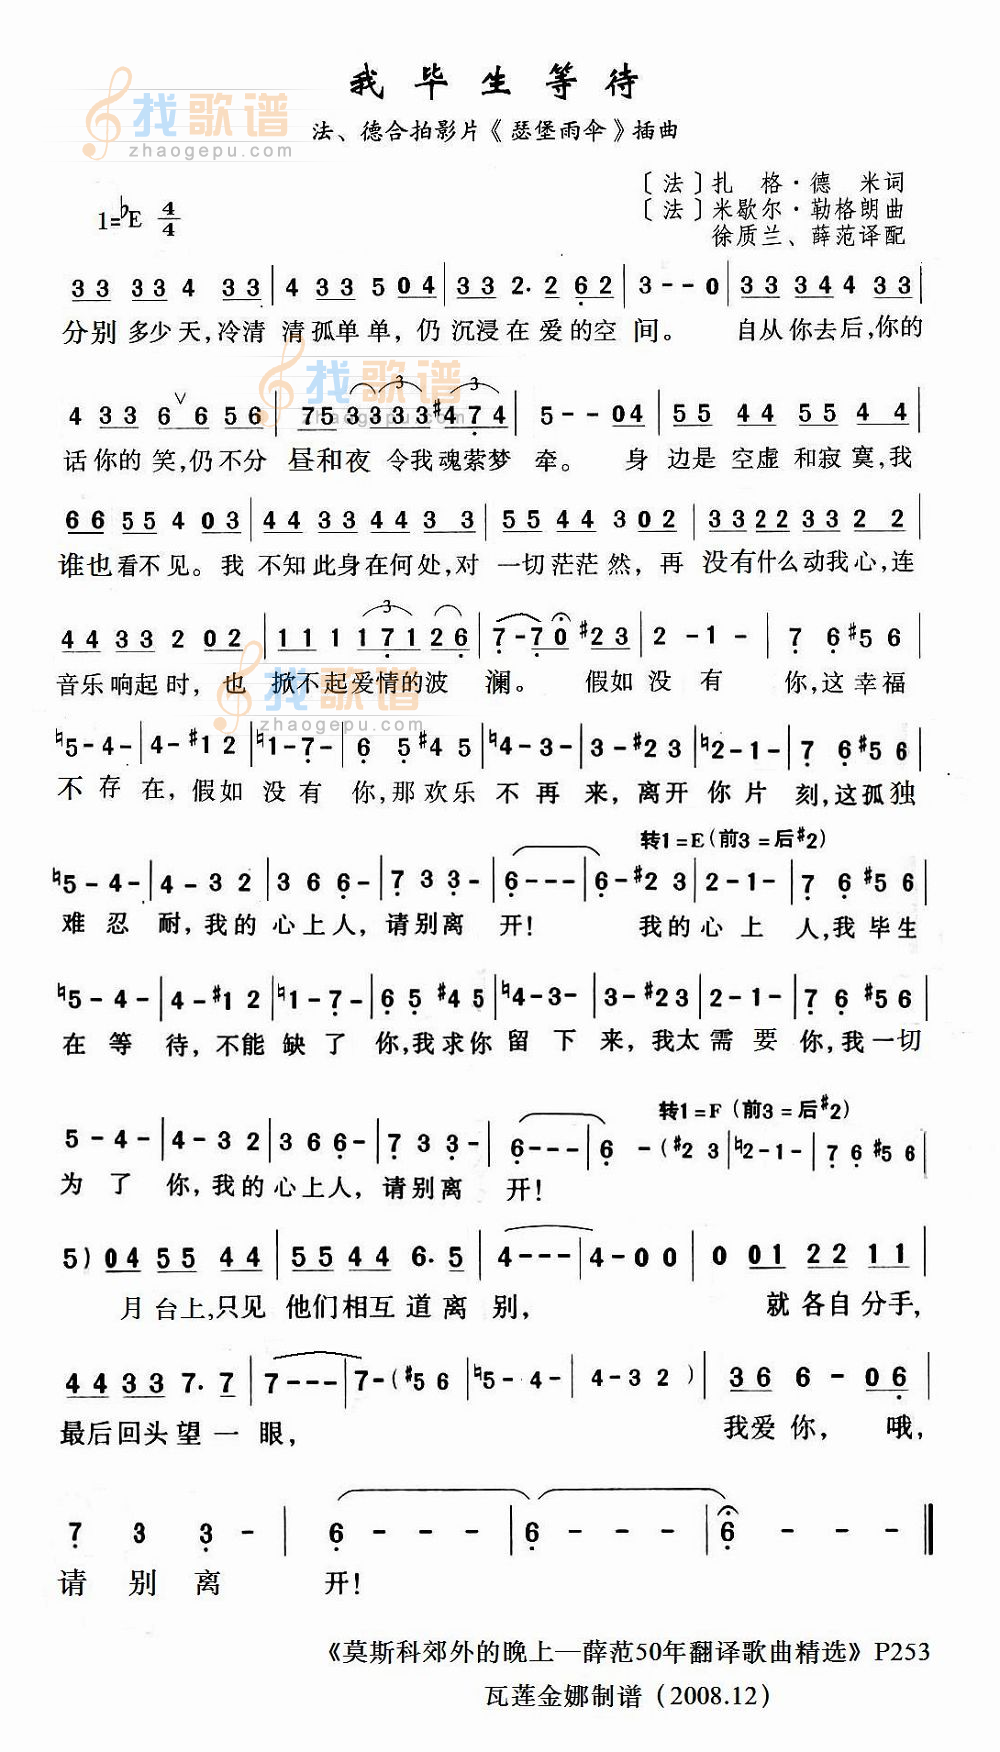 我毕生等待
法、德合拍影片《瑟堡雨伞》插曲
找歌谱
zhaogepu.com
〔法〕扎格·德米词
〔法〕米歇尔·勒格朗曲
徐质兰、薛范译配
1=♭E 4/4
33 33 4 33 | 4 33 5 04 | 33 2. 2 62 | 3 - - 0 | 33 344 33 |
分别多少天,冷清 清孤单单,仍 沉浸在爱的空 间。 自从你去后,你的
找歌谱
zhaogepu.com
4 33 6 ∨ 656 | 75333 3#474 | 5 - - 04 | 55 44 55 4 4 |
话你的笑,仍不分 昼和夜 令我魂萦梦 牵。 身 边是空虚和寂寞,我
66 55 4 03 | 44 33 44 3 3 | 55 44 3 02 | 33 22 33 2 2 |
谁也看不见。我 不知此身在何处,对 一切茫茫然,再 没有什么动我心,连
44 33 2 02 | 1 1 1 171 26 | 7 - 7 0 #23 | 2 - 1 - | 7 6 #5 6
音乐响起时, 也 掀不起爱情的波 澜。 假如没有 你,这幸福
找歌谱
zhaogepu.com
♮5 - 4 - | 4 - #1 2 | ♮1 - 7 - | 6 5 #4 5 | ♮4 - 3 - | 3 - #2 3 | ♮2 - 1 - | 7 6 #5 6
不存在,假如没有你,那欢乐不再来,离开你片刻,这孤独
转1=E(前3=后#2)
♮5 - 4 - | 4 - 3 2 | 3 6 6 - | 7 3 3 - | 6 - - - | 6 - #2 3 | 2 - 1 - | 7 6 #5 6 |
难忍耐,我的心上人,请别离开! 我的心上人,我毕生
♮5 - 4 - | 4 - #1 2 | ♮1 - 7 - | 6 5 #4 5 | ♮4 - 3 - | 3 - #2 3 | 2 - 1 - | 7 6 #5 6 |
在等待,不能缺了你,我求你留下来,我太需要你,我一切
转1=F(前3=后#2)
5 - 4 - | 4 - 3 2 | 3 6 6 - | 7 3 3 - | 6 - - - | 6 - (#2 3 | ♮2 - 1 - | 7 6 #5 6
为了你,我的心上人,请别离开!
5) 04 55 44 | 55 44 6. 5 | 4 - - - | 4 - 0 0 | 0 01 22 11 |
月台上,只见他们相互道离别, 就各自分手,
44 33 7. 7 | 7 - - - | 7 - (#5 6 | ♮5 - 4 - | 4 - 3 2) | 36 6 - 06 |
最后回头望一眼, 我爱你, 哦,
7 3 3 - | 6 - - - | 6 - - - | 6 - - -
请别离开!
《莫斯科郊外的晚上—薛范50年翻译歌曲精选》P253
瓦莲金娜制谱(2008.12)